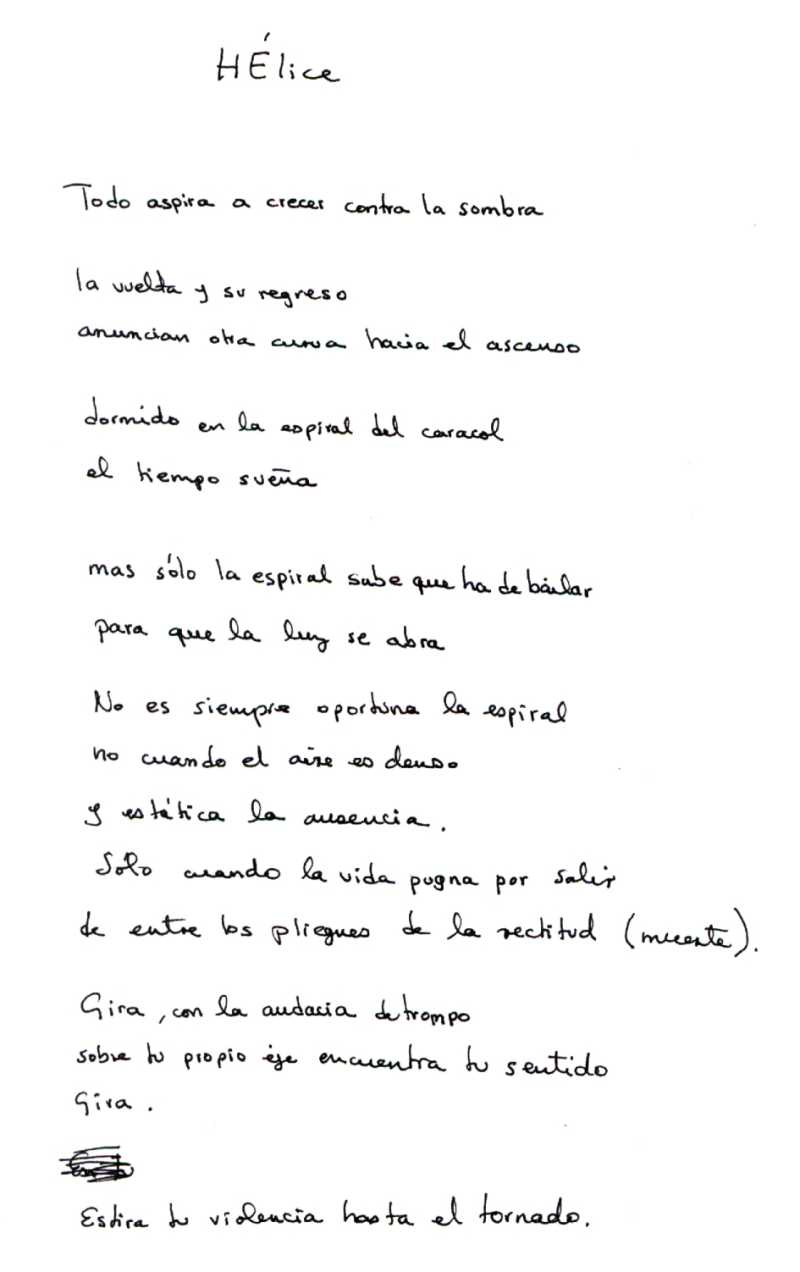 HÉlice
Todo aspira a crecer contra la sombra
la vuelta y su regreso
anuncian otra curva hacia el ascenso
dormido en la espiral del caracol
el tiempo sueña
mas sólo la espiral sabe que ha de bailar
para que la luz se abra
No es siempre oportuna la espiral
no cuando el aire es denso
y estática la ausencia.
Solo cuando la vida pugna por salir
de entre los pliegues de la rectitud (muerte).
Gira, con la audacia de trompo
sobre tu propio eje encuentra tu sentido
Gira.
Estira tu violencia hasta el tornado.